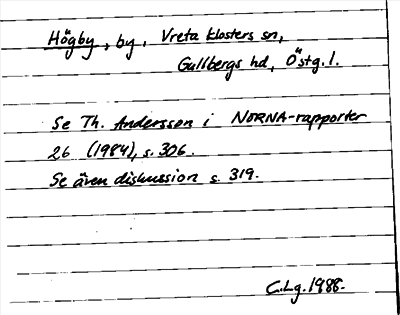 Högby, by, Vreta klosters sn,
Gullbergs hd, Östg.l.
Se Th. Andersson i NORNA-rapporter
26 (1984), s. 306.
Se även diskussion s. 319.
C.Lg. 1988.